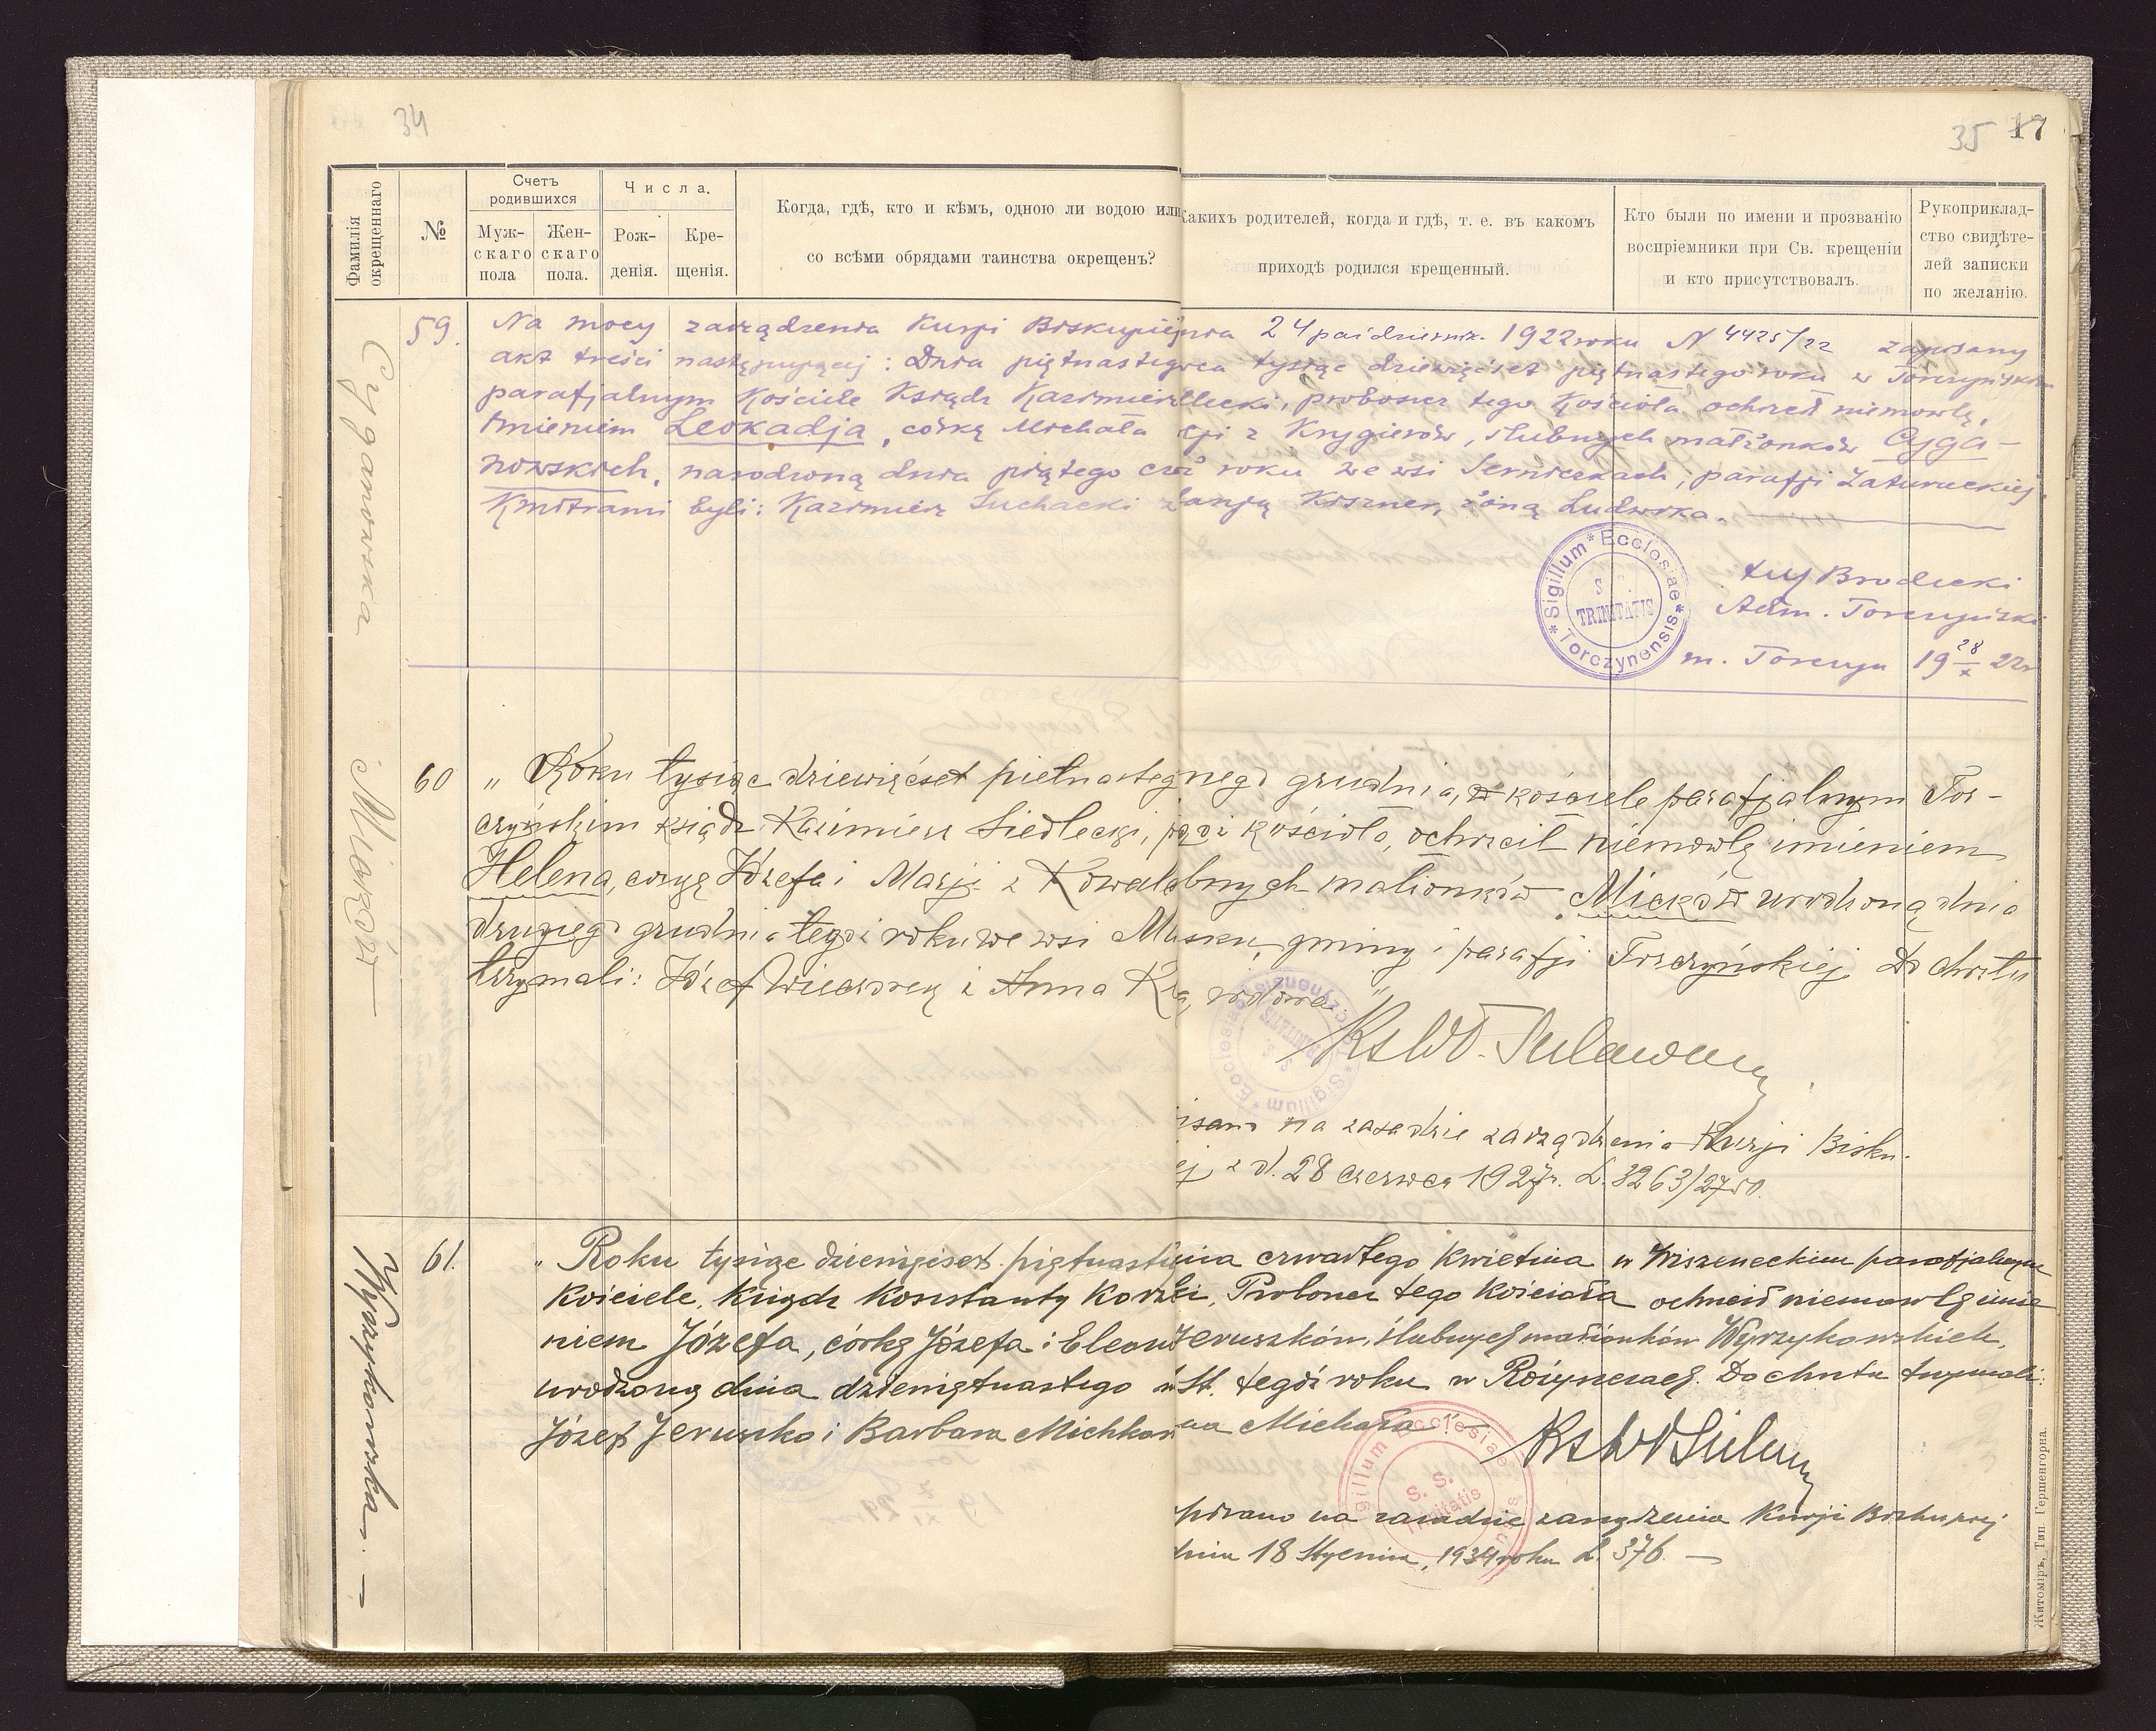 34
35 17
Фамилія окрещеннаго
№
Счетъ родившихся
Муж-скаго пола
Жен-скаго пола.
Числа.
Рож-денія.
Кре-щенія.
Когда, гдѣ, кто и кѣмъ, одною ли водою или
со всѣми обрядами таинства окрещенъ?
Какихъ родителей, когда и гдѣ, т. е. въ какомъ
приходѣ родился крещенный.
Кто были по имени и прозванію
воспріемники при Св. крещеніи
и кто присутствовалъ.
Рукоприклад-
ство свидѣте-
лей записки
по желанію.
Cyganowska
59.
Na mocy zarządzenia Kurji Biskupiej dnia 24 października 1922 roku N 4425/22 zapisany
akt treści następującej: Dnia piętnastego tysiąc dziewięćset piętnastego roku w Torczyńskim
parafjalnym Kościele Ksiądz Kazimierz Siedlecki, proboszcz tego Kościoła ochrzcił niemowlę,
imieniem Leokadja, córkę Michała i z Krygierów, ślubnych małżonków Cyga-
nowskich, narodzoną dnia piątego roku we wsi Serniczkach, parafji Zatureckiej.
Kmotrami byli: Kazimierz Suchacki z Kiszner, żoną Ludwika.
*Sigillum*Ecclesiae* Torczynensis
S. S. TRINITATIS
Brodecki
Adm. Torczyński
m. Torczyn 19 28/X 22r
Micków
60
„ Roku tysiąc dziewięćset piętnastego grudnia, w kościele parafjalnym Tor-
czyńskim ksiądz Kazimierz Siedlecki, kościoła, ochrzcił niemowlę imieniem
Helena, córkę Józefa i Marji z ślubnych małżonków Micków urodzoną dnia
drugiego grudnia tegoż roku we wsi gminy i parafji Torczyńskiej. Do chrztu
trzymali: Józef Wieczorek i Anna wdowa"
Ks Wł.
na zasadzie zarządzenia Kurji Bisku-
z d. 28 czerwca 1927r. L. 3263/27
Wyrzykowska
61.
„ Roku tysiąc dziewięćset piętnastego dnia czwartego kwietnia w Wiszeneckim parafjalnym
kościele, ksiądz Konstanty Proboszcz tego kościoła ochrzcił niemowlę imie
niem Józefa, córkę Józefa i Jeruszków, ślubnych małżonków Wyrzykowskich,
urodzoną dnia dziewiętnastego tegoż roku w Rożyszczach. Do chrztu trzymali:
Józef Jeruszko i Barbara Michała"
Ks Wł
na zasadzie zarządzenia Kurji Biskupiej
dnia 18 stycznia, 1934 roku L. 376.
S. S. Trinitatis
Житоміръ, Тип. Гершенгорна.